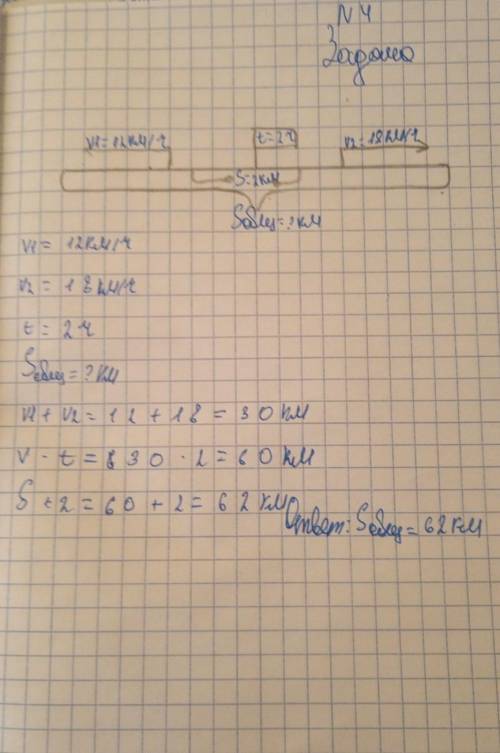 N4
Задача
v1 = 12км/ч
t = 2ч
v2 = 18км/ч
S = 2км
Sобщ = ? км
v1 = 12км/ч
v2 = 18км/ч
t = 2ч
Sобщ = ? км
v1 + v2 = 12 + 18 = 30 км
v · t = 30 · 2 = 60 км
S + 2 = 60 + 2 = 62 км
Ответ: Sобщ = 62 км